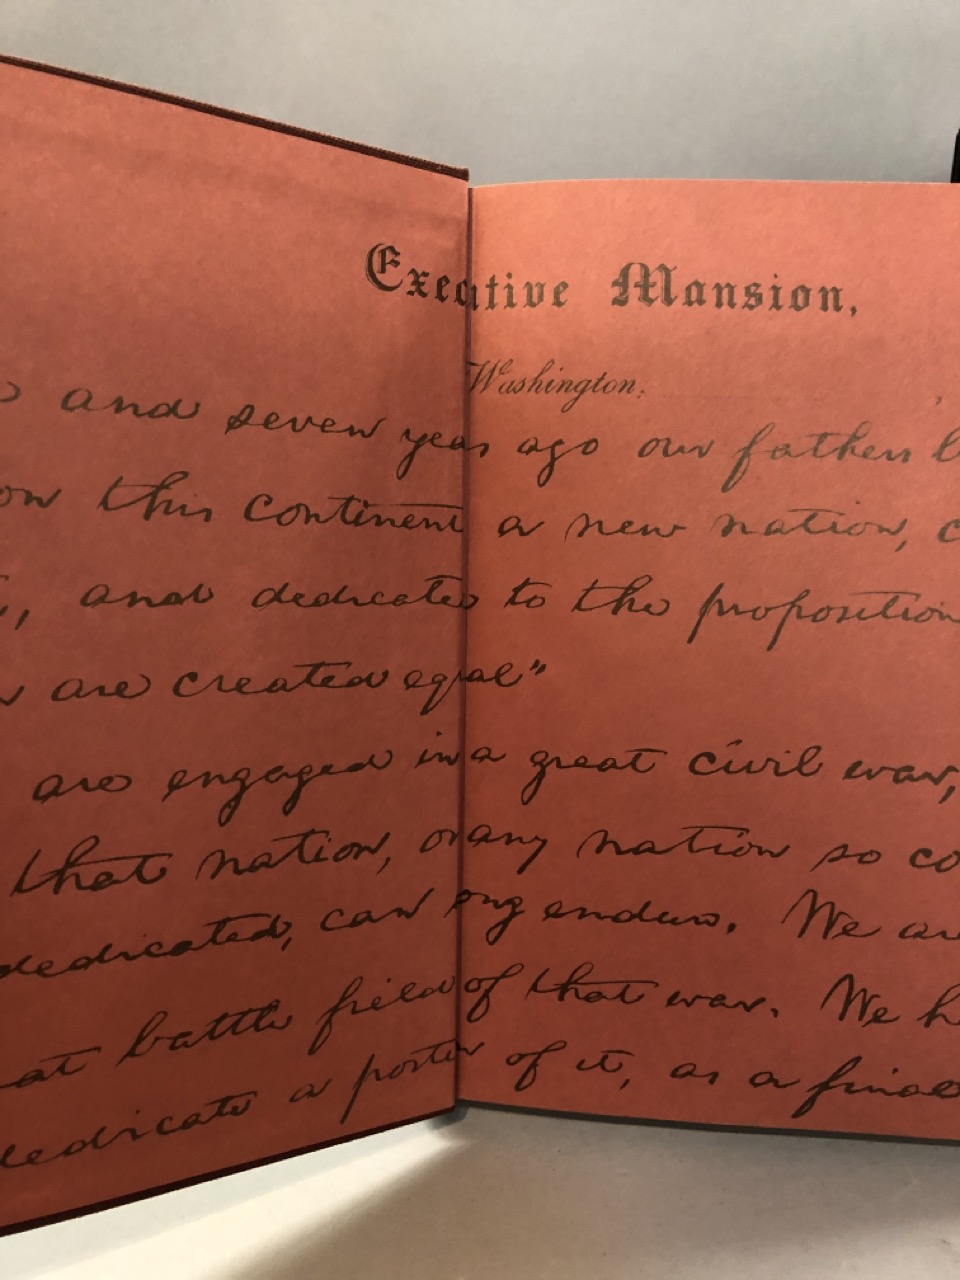 Executive Mansion,
Washington,
and seven years ago our fathers
this continent a new nation,
and dedicated to the proposition
are created equal"
are engaged in a great civil war,
that nation, or any nation so co
dedicated, can long endure. We are
at battle field of that war. We h
dedicate a portion of it, as a final